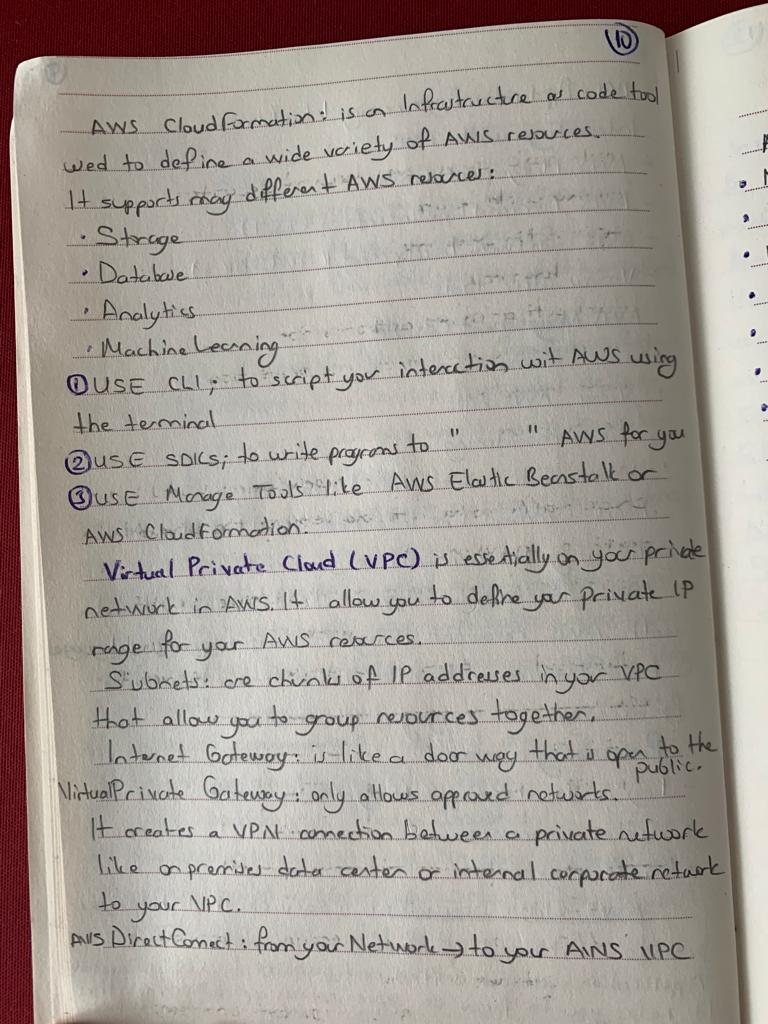 10
AWS CloudFormation: is an Infrastructure as code tool
used to define a wide variety of AWS resources.
It supports many different AWS resources:
· Storage
· Database
· Analytics
· Machine Learning
① USE CLI; to script your interaction wit AWS using
the terminal
② USE SDKs; to write programs to " " AWS for you
③ USE Manage Tools like AWS Elastic Beanstalk or
AWS CloudFormation.
Virtual Private Cloud (VPC) is essentially on your private
network in AWS. It allow you to define your private IP
range for your AWS resources.
Subnets: are chunks of IP addresses in your VPC
that allow you to group resources together.
Internet Gateway: is like a door way that is open to the
public.
Virtual Private Gateway: only allows approved networks.
It creates a VPN connection between a private network
like on premises data center or internal corporate network
to your VPC.
AWS Direct Connect: from your Network → to your AWS VPC